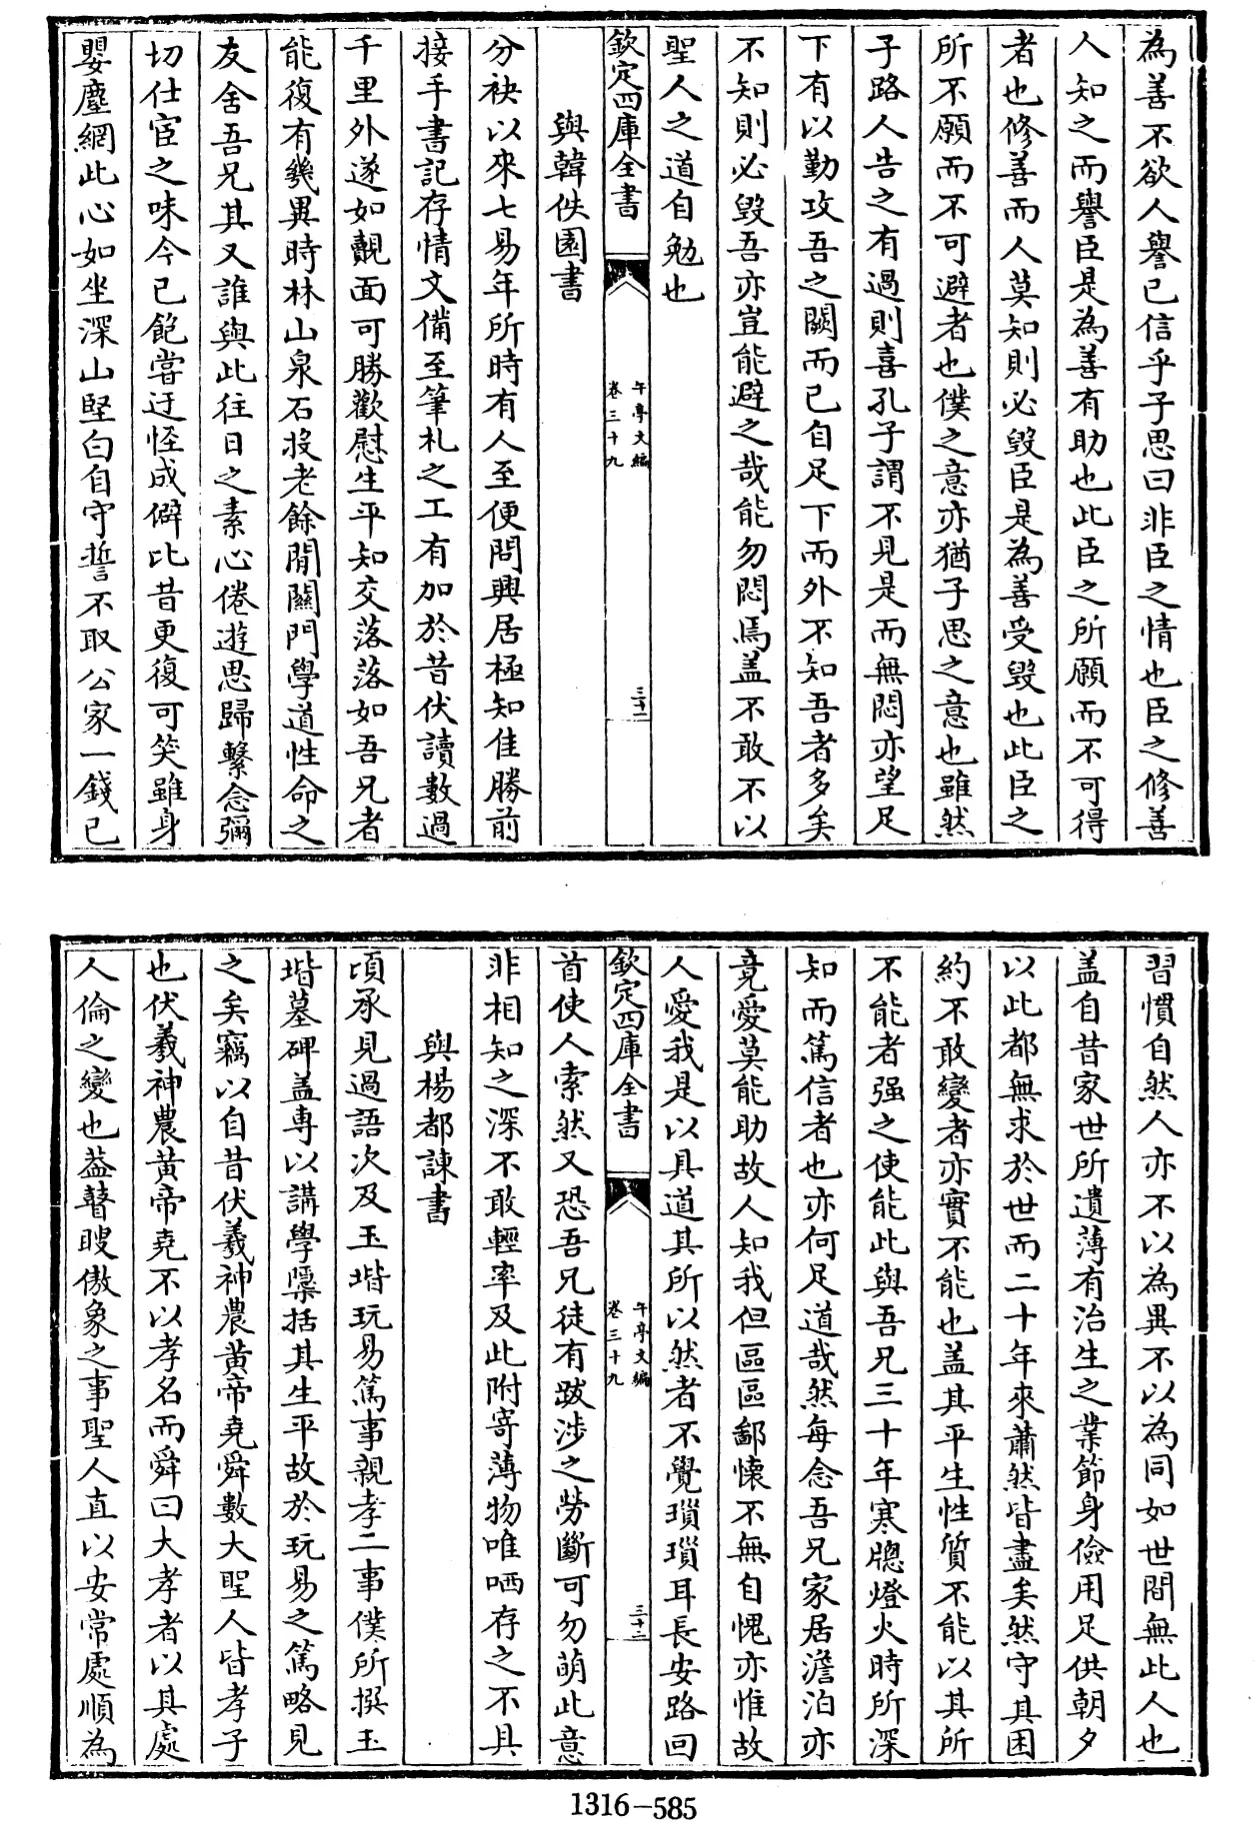 為善不欲人譽已信乎子思曰非臣之情也臣之修善
人知之而譽臣是為善有助也此臣之所願而不可得
者也修善而人莫知則必毀臣是為善受毀也此臣之
所不願而不可避者也僕之意亦猶子思之意也雖然
子路人告之有過則喜孔子謂不見是而無悶亦望足
下有以勤攻吾之闕而已自足下而外不知吾者多矣
不知則必毀吾亦豈能避之哉能勿悶焉盖不敢不以
聖人之道自勉也
欽定四庫全書
午亭文編
卷三十九
三十一
與韓佚園書
分袂以來七易年所時有人至便問興居極知佳勝前
接手書記存情文備至筆札之工有加於昔伏讀數過
千里外遂如覿面可勝歡慰生平知交落落如吾兄者
能復有幾異時林山泉石投老餘閒關門學道性命之
友舍吾兄其又誰與此往日之素心倦遊思歸繫念彌
切仕宦之味今已飽嘗迂怪成僻比昔更復可笑雖身
嬰塵網此心如坐深山堅白自守誓不取公家一錢已
習慣自然人亦不以為異不以為同如世間無此人也
盖自昔家世所遺薄有治生之業節身儉用足供朝夕
以此都無求於世而二十年來蕭然皆盡矣然守其困
約不敢變者亦實不能也盖其平生性質不能以其所
不能者强之使能此與吾兄三十年寒牕燈火時所深
知而篤信者也亦何足道哉然每念吾兄家居澹泊亦
竟愛莫能助故人知我但區區鄙懷不無自愧亦惟故
人愛我是以具道其所以然者不覺瑣瑣耳長安路回
欽定四庫全書
午亭文編
卷三十九
三十二
首使人索然又恐吾兄徒有跋涉之勞斷可勿萌此意
非相知之深不敢輕率及此附寄薄物唯哂存之不具
與楊都諫書
頃承見過語次及玉堦玩易篤事親孝二事僕所撰玉
堦墓碑盖専以講學檃括其生平故於玩易之篤略見
之矣竊以自昔伏羲神農黄帝堯舜數大聖人皆孝子
也伏羲神農黄帝堯不以孝名而舜曰大孝者以其處
人倫之變也益瞽瞍傲象之事聖人直以安常處順為
1316-585